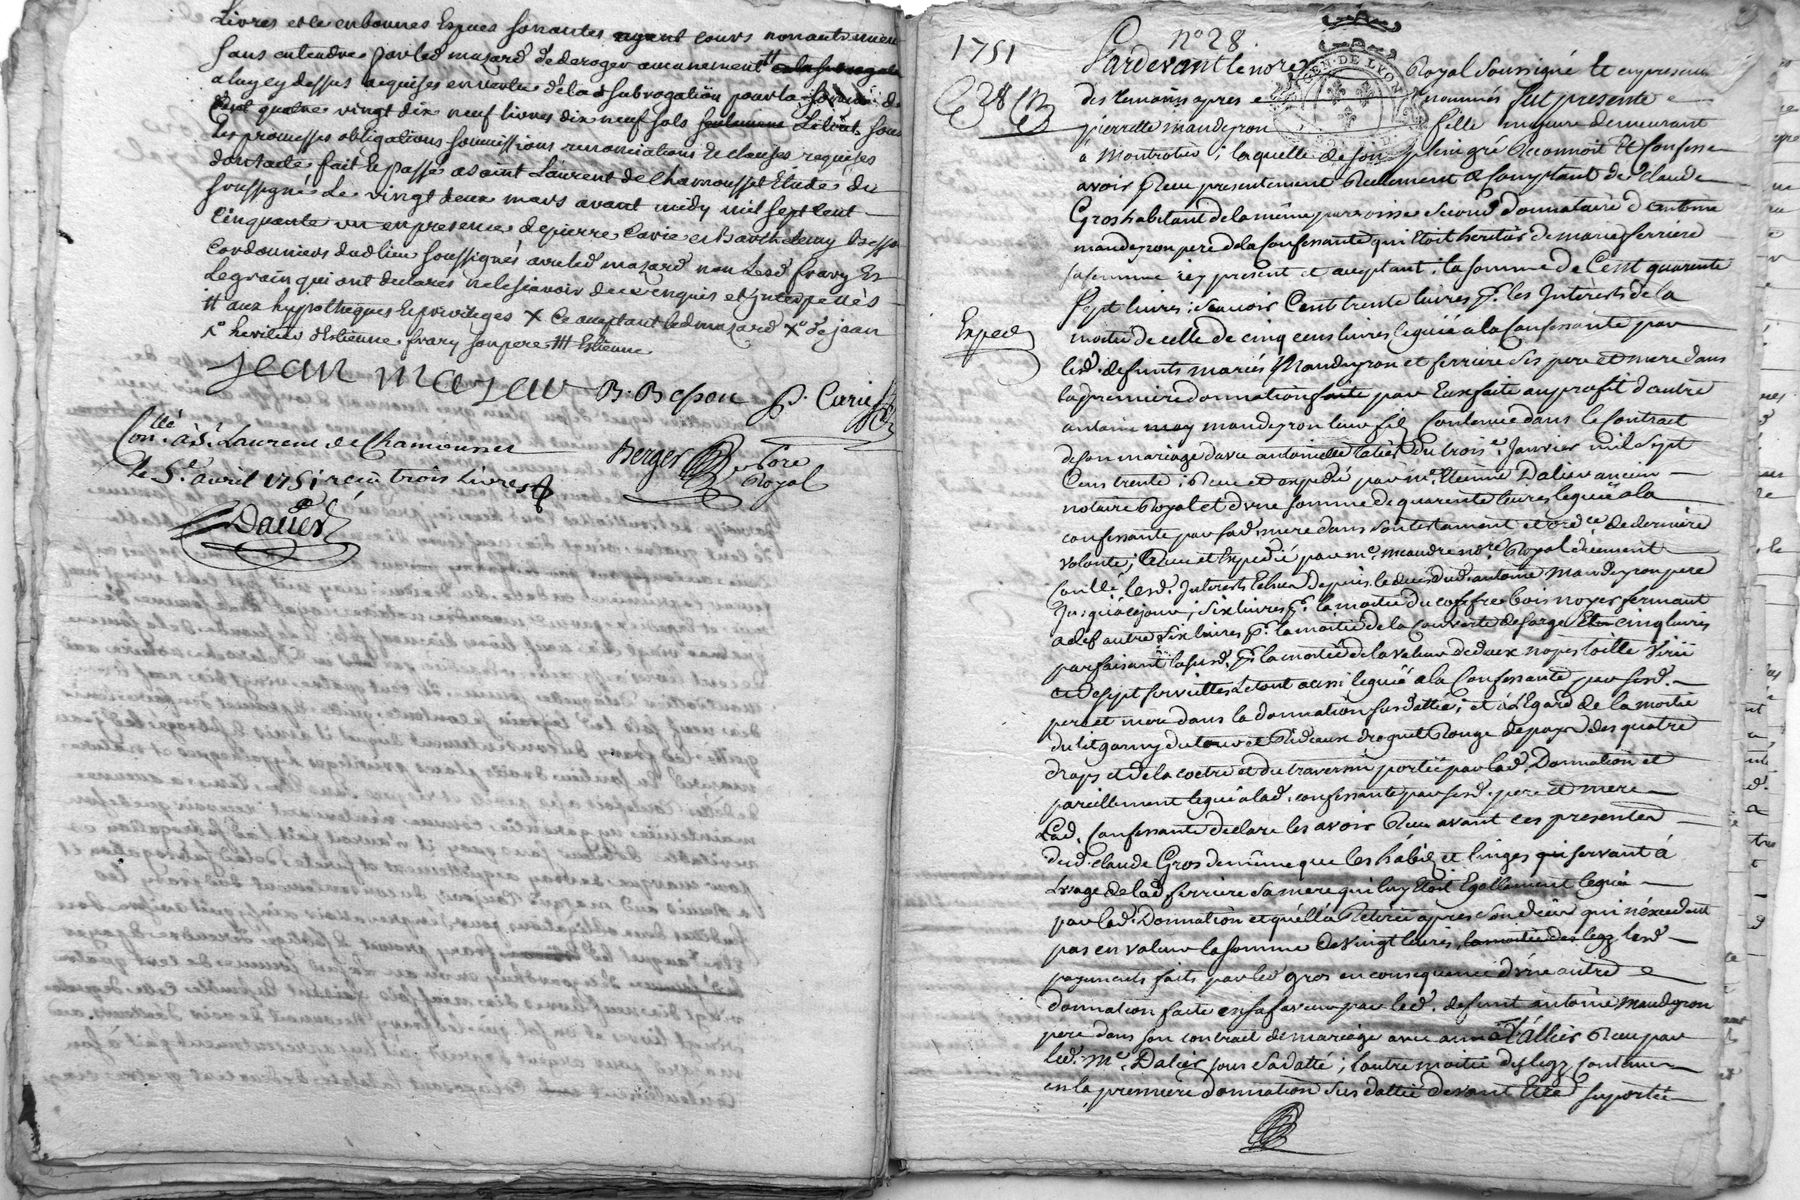 Livres et le en bonnes Espues sonantes ayant cours
sans entendre par led mazard dederoger aucunement #
aluy cy dessus acquises en vertu de la subrogation pour la somme de
Cent quatre vingt dix neuf livres dix neuf sols seulement Letout sous
Les promesses obligations soumissions renonciations Et clauses requises
dontacte fait Et passé asaint Laurent de Chamousset Etude du
soussigné Le vingt deux mars avant midy mil sept Cent
Cinquante un en presence de pierre Carie et Barthelemy Besson
Cordonniers dud lieu soussignés avec led mazard non Lesd fravy Et
Legrain qui ont declarés ne le sçavoir de ce enquis et Interpellés
# aux hypotheques Et privileges X Ce aceptant led mazard X de jean
heritier d'Estienne fravy son pere ## Estienne
Jean mazard B. Besson P. Carie
Berger no.re Royal
Con.llé à S.t Laurent de Chamousset
le 5.e avril 1751 reçu trois Livres
Dauer
1751
n° 28
28
GEN. DE LYON
Pardevant le no.re Royal soussigné Et en presence
des temoins apres nommés fut presente
pierrette mandeyron fille majeure demeurant
à Montrotier ; laquelle de son plein gré Reconnoit Et Confesse
avoir Reçu presentement Reelement & Comptant de Claude
Gros habitant de la même paroisse second donnataire d'antoine
mandeyron pere de la Confessante qui Etoit heritier de marie ferriere
sa femme icy present et aceptant, la somme de Cent quarente
Sept livres ; sçavoir Cent trente livres p.r les Interests de la
Exped
moitié de celle de cinq cens livres leguée a la Confessante par
lesd. defunts mariés Mandeyron et ferriere ses pere et mere dans
la premiere donnation faite par Eux faite au profit d'autre
antoine mandeyron leur fils Contenue dans le Contrat
de son mariage avec antoinette tallier du trois.e Janvier mil Sept
Cens trente ; Reçu et expedié par m.e Etienne Dalier ancien
notaire Royal et d'une somme de quarente livres leguée a la
confessante par sad. mere dans son testament et ord.ce de derniere
volonté, Reçue et Expedié par m.e meaudre no.re Royal düement
Con.llé lesd. Interests Echus depuis le decès dud. antoine Mandeyron pere
Jusqu'àcejour ; Six livres p.r la moitié du coffre bois noyer fermant
a clef autre six livres p.r la moitié de la Couverte de sarge Et cinq livres
parfaisant lasusd. p.r la moitié de la valeur de deux napes toille
et de sept serviettes Letout aussi legué a la Confessante par sesd.
pere et mere dans la donnation susdattée ; et à l'Egard de la moitié
du lit garny du tour et Rideaux droguet Rouge de pays des quatre
draps et de la coetre et du traversin portée par lad. Donnation et
pareillement legué a lad. confessante par sesd. pere et mere
Lad. Confessante declare les avoir Reçu avant ces presentes
dud. claude Gros de même que les habits et linges qui servant à
L'usage de lad ferriere sa mere qui luy Etoit Egallement legués
par lad. Donnation et qu'ell'a Retirés après son decès qui n'excedent
pas en valeur la somme de vingt livres, lesd
payements faits par led gros en consequence d'une autre
donnation faite en sa faveur par led. defunt antoine Mandeyron
pere dans son contrat de mariage avec anne Tallier Reçu par
led. M.e Dalier sous sa datte ; l'autre moitié des legs contenus
en la premiere donnation Susdattée devant Etre suportée